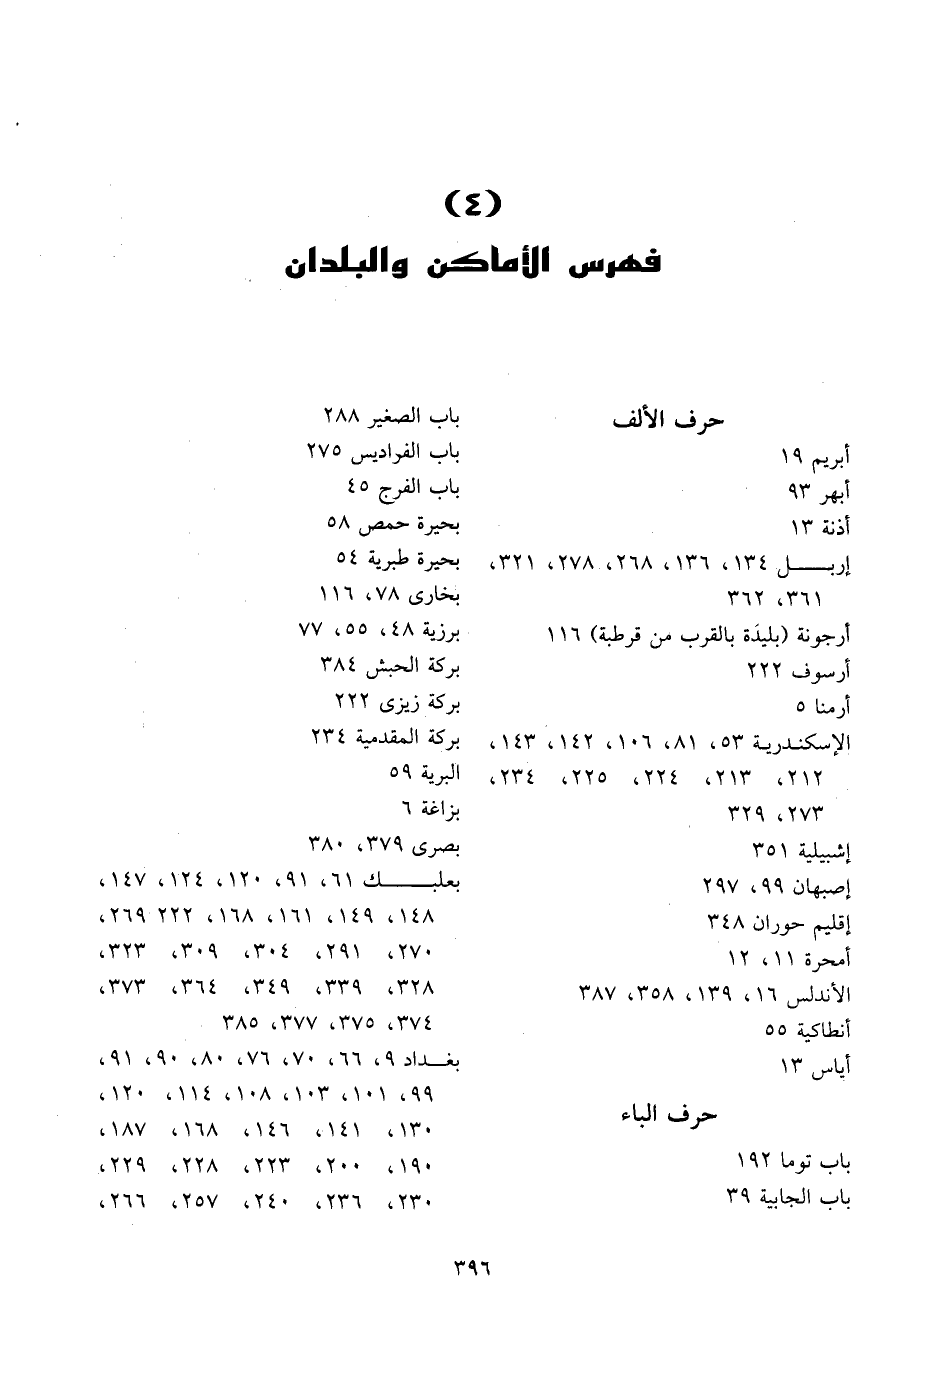 (٤)
فهرس الأماكن والبلدان
حرف الألف
أبريم ١٩
أبهر ٩٣
أذنة ١٣
إربـــل ١٣٤، ١٣٦، ٢٦٨، ٢٧٨، ٣٢١،
٣٦١، ٣٦٢
أرجونة (بليدَة بالقرب من قرطبة) ١١٦
أرسوف ٢٢٢
أرمنا ٥
الإسكندرية ٥٣، ٨١، ١٠٦، ١٤٢، ١٤٣،
٢١٢، ٢١٣، ٢٢٤، ٢٢٥، ٢٣٤،
٢٧٣، ٣٢٩
إشبيلية ٣٥١
إصبهان ٩٩، ٢٩٧
إقليم حوران ٣٤٨
أمحرة ١١، ١٢
الأندلس ١٦، ١٣٩، ٣٥٨، ٣٨٧
أنطاكية ٥٥
أياس ١٣
حرف الباء
باب توما ١٩٢
باب الجابية ٣٩
باب الصغير ٢٨٨
باب الفراديس ٢٧٥
باب الفرج ٤٥
بحيرة حمص ٥٨
بحيرة طبرية ٥٤
بخارى ٧٨، ١١٦
برزية ٤٨، ٥٥، ٧٧
بركة الحبش ٣٨٤
بركة زيزى ٢٢٢
بركة المقدمية ٢٣٤
البرية ٥٩
بزاغة ٦
بصرى ٣٧٩، ٣٨٠
بعلبـــك ٦١، ٩١، ١٢٠، ١٢٤، ١٤٧،
١٤٨، ١٤٩، ١٦١، ١٦٨، ٢٢٢ ٢٦٩،
٢٧٠، ٢٩١، ٣٠٤، ٣٠٩، ٣٢٣،
٣٢٨، ٣٣٩، ٣٤٩، ٣٦٤، ٣٧٣،
٣٧٤، ٣٧٥، ٣٧٧، ٣٨٥
بغـداد ٩، ٦٦، ٧٠، ٧٦، ٨٠، ٩٠، ٩١،
٩٩، ١٠١، ١٠٣، ١٠٨، ١١٤، ١٢٠،
١٣٠، ١٤١، ١٤٦، ١٦٨، ١٨٧،
١٩٠، ٢٠٠، ٢٢٣، ٢٢٨، ٢٢٩،
٢٣٠، ٢٣٦، ٢٤٠، ٢٥٧، ٢٦٦،
٣٩٦